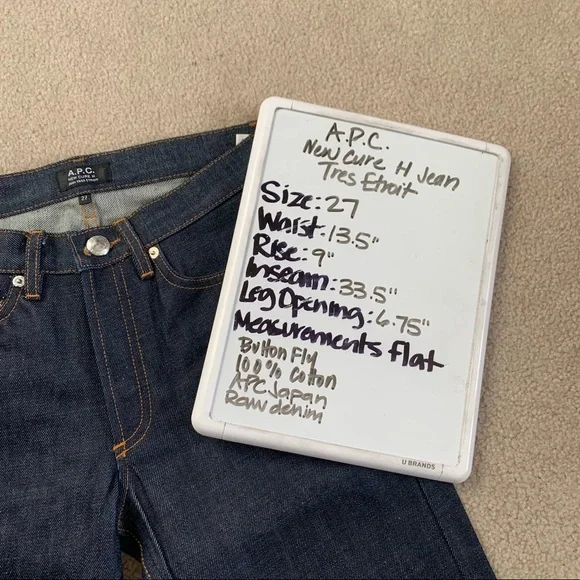 A.P.C.
NEW CURE H
TRES ETROIT
27
A.P.C.
New Cure H Jean
Tres Etroit
Size: 27
Waist: 13.5"
Rise: 9"
Inseam: 33.5"
Leg Opening: 6.75"
Measurements flat
Button Fly
100% Cotton
APC Japan
Raw denim
U BRANDS